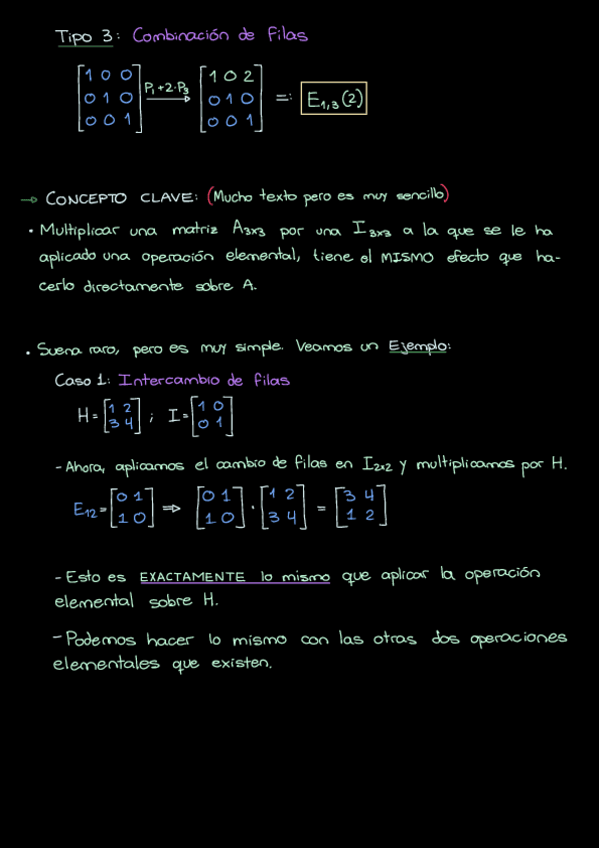 Tipo 3: Combinación de filas
[1 0 0; 0 1 0; 0 0 1] P₁+2·P₃ → [1 0 2; 0 1 0; 0 0 1] =: E₁,₃(2)
→ CONCEPTO CLAVE: (Mucho texto pero es muy sencillo)
• Multiplicar una matriz A₃ₓ₃ por una I₃ₓ₃ a la que se le ha
aplicado una operación elemental, tiene el MISMO efecto que ha-
cerlo directamente sobre A.
• Suena raro, pero es muy simple. Veamos un Ejemplo:
Caso 1: Intercambio de filas
H=[1 2; 3 4] ; I=[1 0; 0 1]
- Ahora, aplicamos el cambio de filas en I₂ₓ₂ y multiplicamos por H.
E₁₂=[0 1; 1 0] ⇒ [0 1; 1 0] · [1 2; 3 4] = [3 4; 1 2]
- Esto es EXACTAMENTE lo mismo que aplicar la operación
elemental sobre H.
- Podemos hacer lo mismo con las otras dos operaciones
elementales que existen.